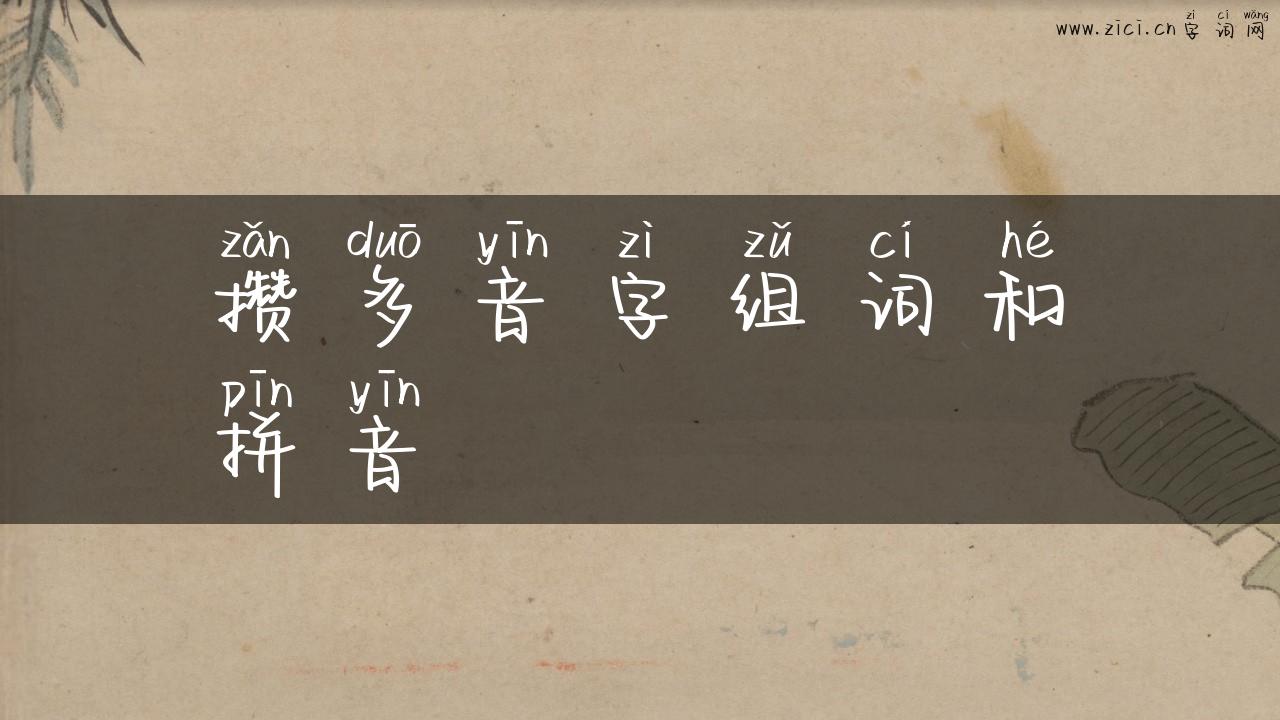 zì cí wǎng
www.zici.cn 字词网
zǎn duō yīn zì zǔ cí hé
攒多音字组词和
pīn yīn
拼音